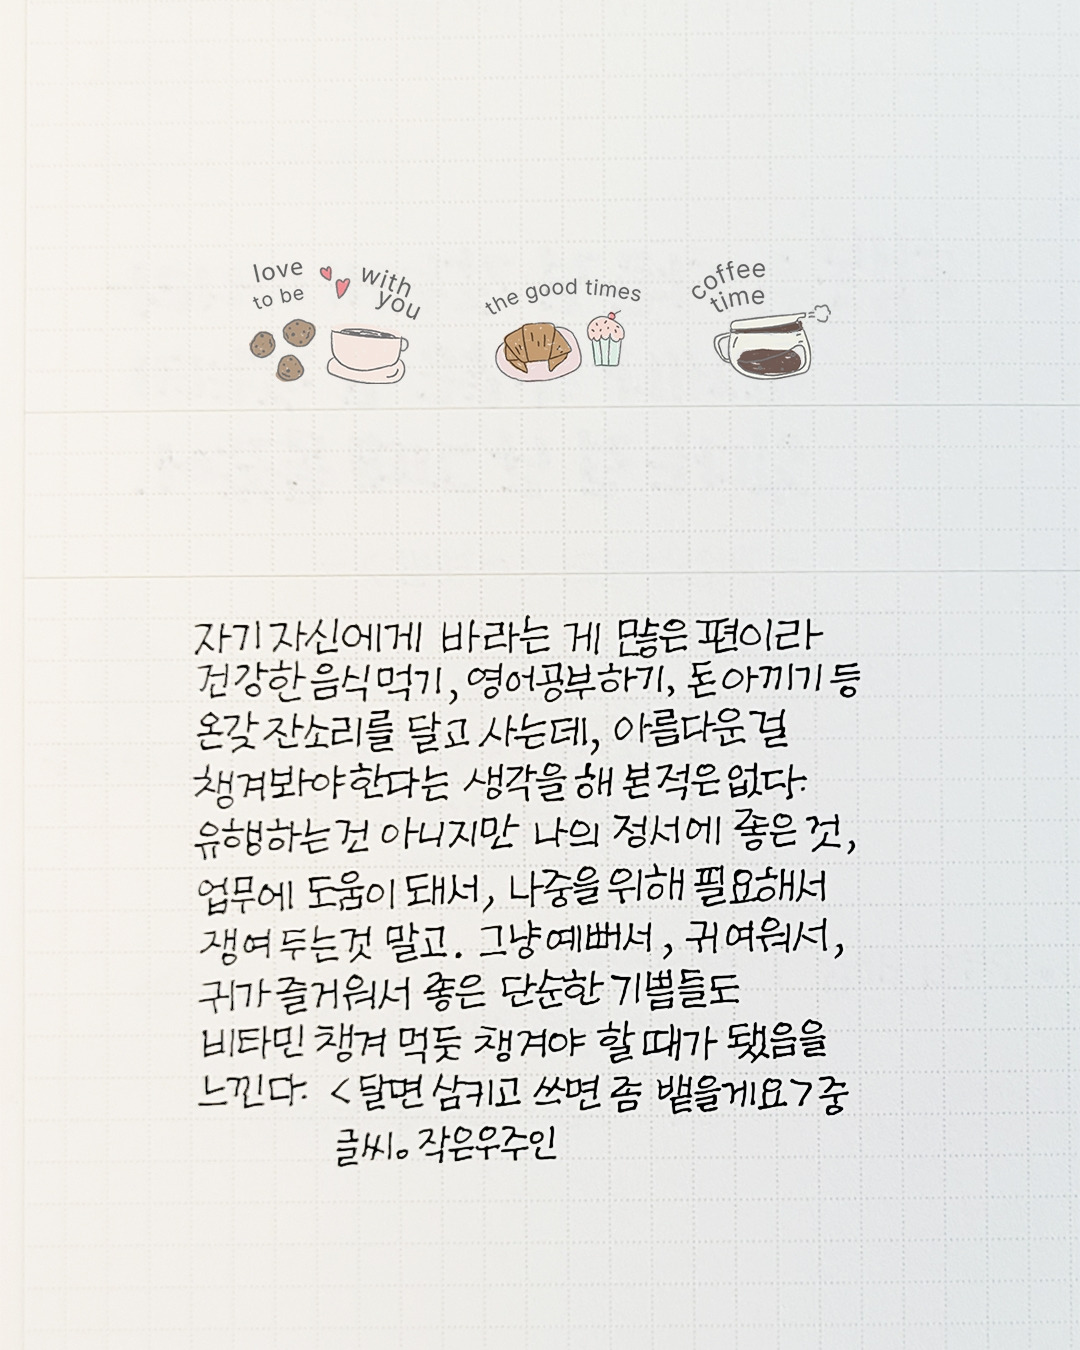 love to be with you
the good times
coffee time
자기 자신에게 바라는 게 많은 편이라
건강한 음식 먹기, 영어공부하기, 돈 아끼기 등
온갖 잔소리를 달고 사는데, 아름다운 걸
챙겨봐야 한다는 생각을 해 본 적은 없다.
유행하는 건 아니지만 나의 정서에 좋은 것,
업무에 도움이 돼서, 나중을 위해 필요해서
쟁여 두는 것 말고. 그냥 예뻐서, 귀여워서,
귀가 즐거워서 좋은 단순한 기쁨들도
비타민 챙겨 먹듯 챙겨야 할 때가 됐음을
느낀다. <달면 삼키고 쓰면 좀 뱉을게요> 중
글씨。작은우주인